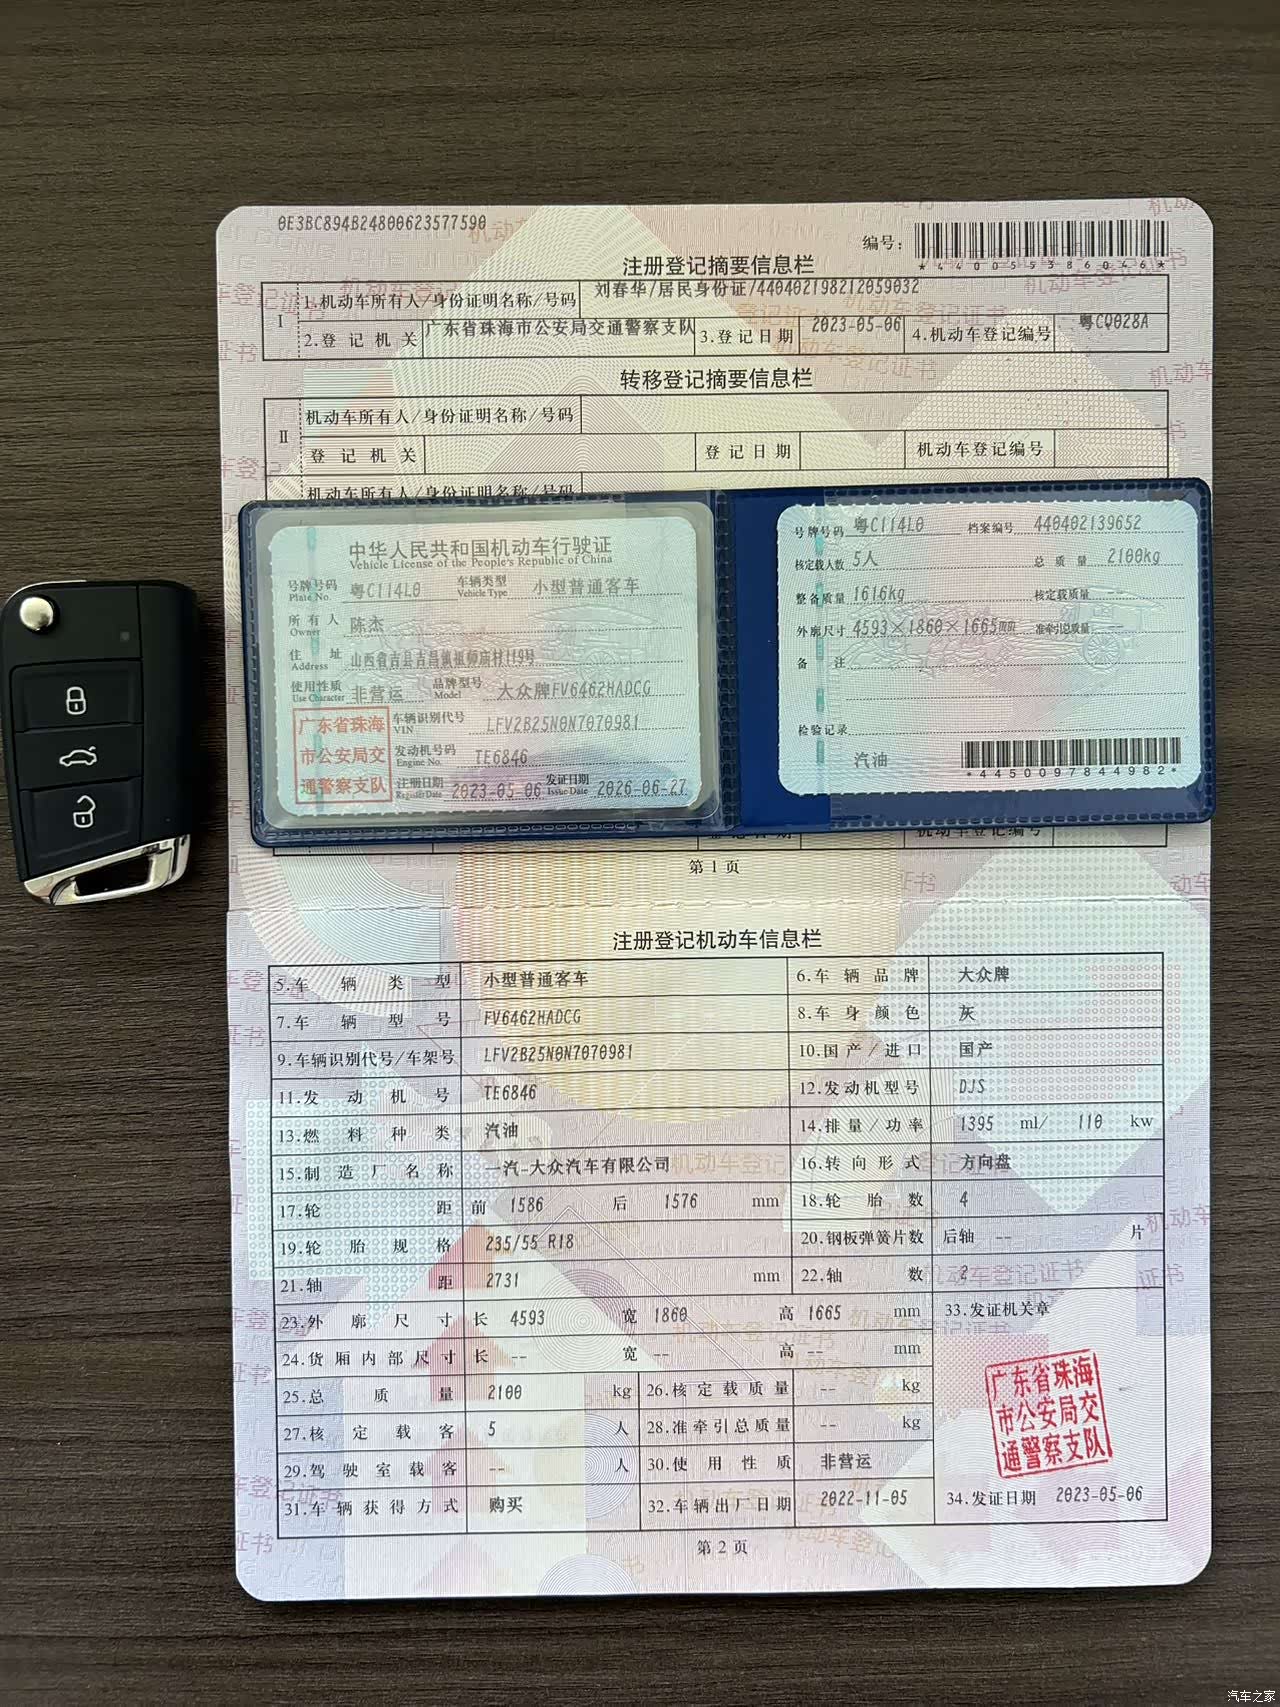 0E3BC894B24800623577590
编号：
*440055386046*
注册登记摘要信息栏
I
1.机动车所有人/身份证明名称/号码 刘春华/居民身份证/440402198212059032
2.登记机关 广东省珠海市公安局交通警察支队 3.登记日期 2023-05-06 4.机动车登记编号 粤CQ028A
转移登记摘要信息栏
II
机动车所有人/身份证明名称/号码
登记机关 登记日期 机动车登记编号
机动车所有人/身份证明名称/号码
中华人民共和国机动车行驶证
Vehicle License of the People's Republic of China
号牌号码 粤C114L0 车辆类型 小型普通客车
Plate No. Vehicle Type
所有人 陈杰
Owner
住址 山西省吉县吉昌镇祖师庙村119号
Address
使用性质 非营运 品牌型号 大众牌FV6462HADCG
Use Character Model
广东省珠海
市公安局交
通警察支队
车辆识别代号 LFV2B25N0N7070981
VIN
发动机号码 TE6846
Engine No.
注册日期 2023-05-06 发证日期 2026-06-27
Register Date Issue Date
号牌号码 粤C114L0 档案编号 440402139652
核定载人数 5人 总质量 2100kg
整备质量 1616kg 核定载质量 --
外廓尺寸 4593×1860×1665mm 准牵引总质量 --
备注
检验记录
汽油
*4450097844982*
登记日期 机动车登记编号
第 1 页
注册登记机动车信息栏
5.车辆类型 小型普通客车 6.车辆品牌 大众牌
7.车辆型号 FV6462HADCG 8.车身颜色 灰
9.车辆识别代号/车架号 LFV2B25N0N7070981 10.国产/进口 国产
11.发动机号 TE6846 12.发动机型号 DJS
13.燃料种类 汽油 14.排量/功率 1395 ml/ 110 kw
15.制造厂名称 一汽-大众汽车有限公司 16.转向形式 方向盘
17.轮距 前 1586 后 1576 mm 18.轮胎数 4
19.轮胎规格 235/55 R18 20.钢板弹簧片数 后轴 -- 片
21.轴距 2731 mm 22.轴数 2
23.外廓尺寸 长 4593 宽 1860 高 1665 mm 33.发证机关章
24.货厢内部尺寸 长 -- 宽 -- 高 -- mm
25.总质量 2100 kg 26.核定载质量 -- kg
27.核定载客 5 人 28.准牵引总质量 -- kg
29.驾驶室载客 -- 人 30.使用性质 非营运
31.车辆获得方式 购买 32.车辆出厂日期 2022-11-05 34.发证日期 2023-05-06
广东省珠海
市公安局交
通警察支队
第 2 页
汽车之家